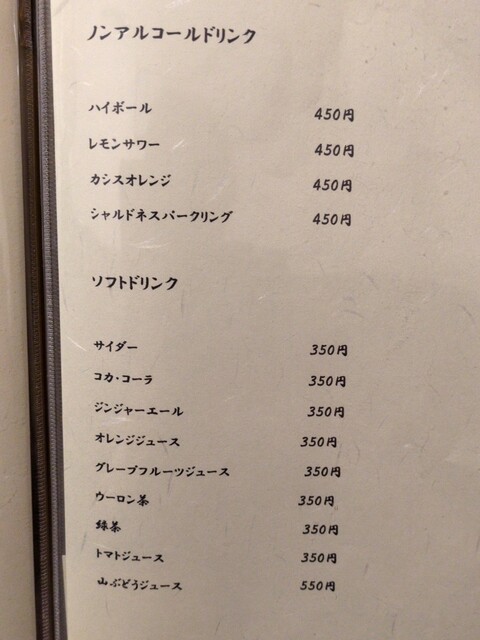 ノンアルコールドリンク
ハイボール 450円
レモンサワー 450円
カシスオレンジ 450円
シャルドネスパークリング 450円
ソフトドリンク
サイダー 350円
コカ・コーラ 350円
ジンジャーエール 350円
オレンジジュース 350円
グレープフルーツジュース 350円
ウーロン茶 350円
緑茶 350円
トマトジュース 350円
山ぶどうジュース 550円